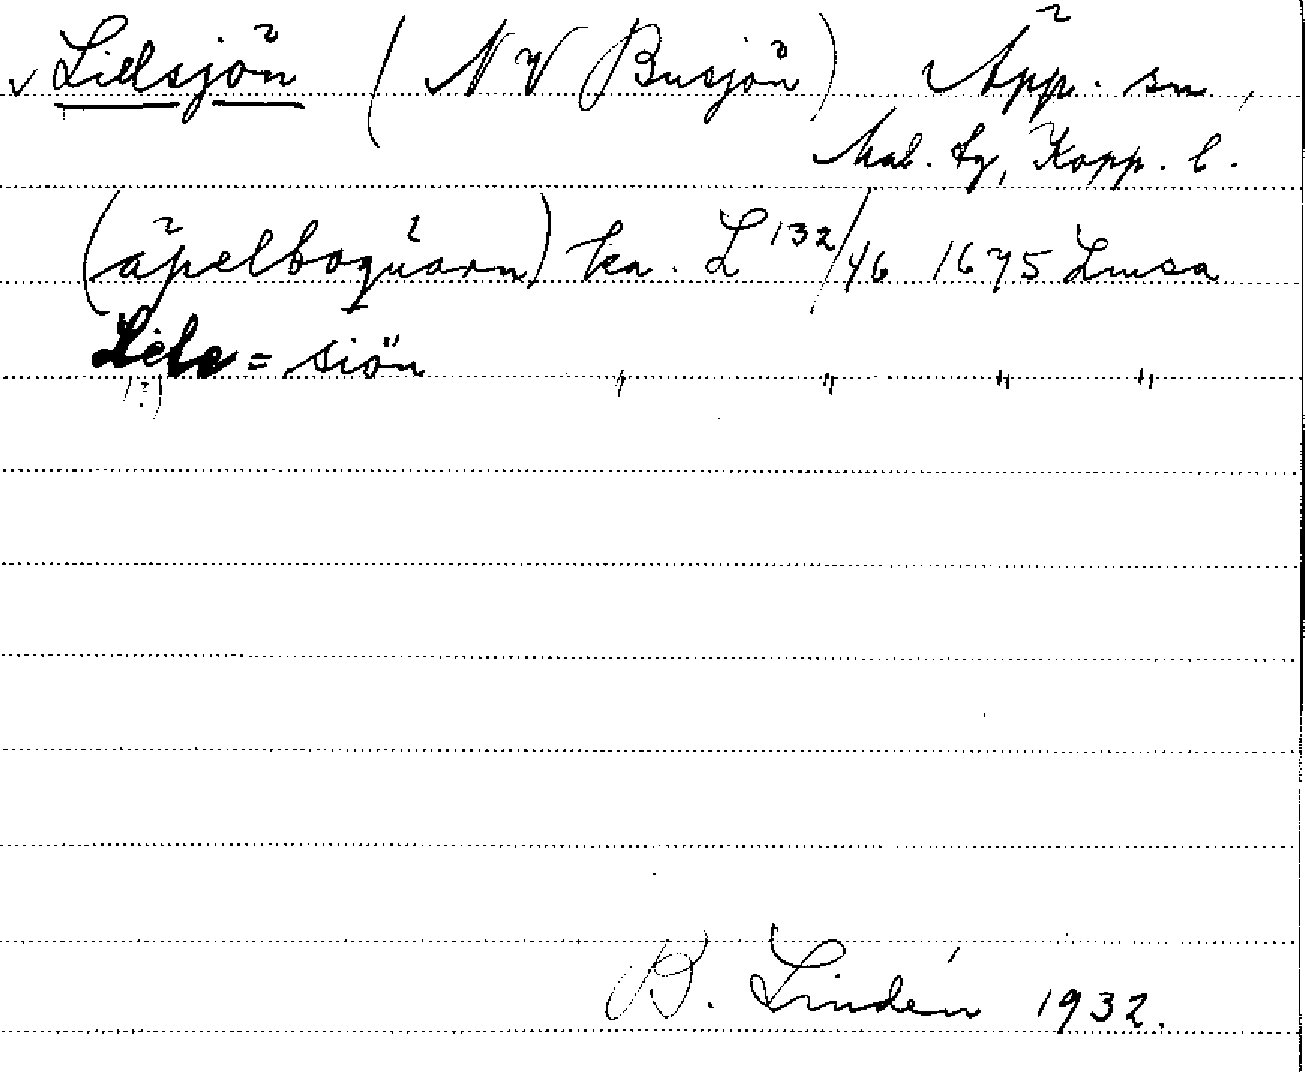 v Lidsjön (NV Busjön) Äpp. sn,
Mal. tg, Kopp. l.
(äpelboquarn) ka. L 132/46 1675 Lmsa
= siön " " " "
(?)
B. Lindén 1932.